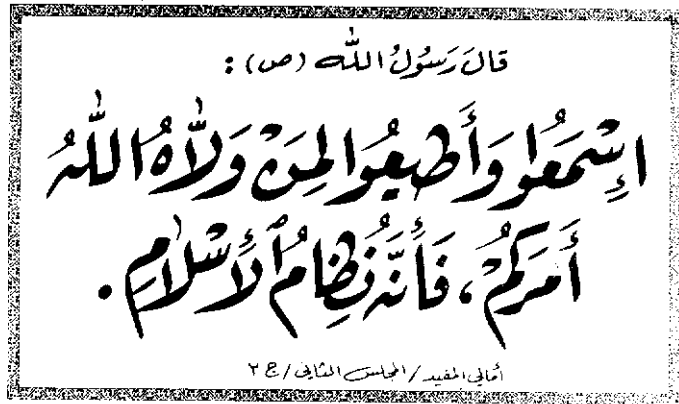 قَالَ رَسُولُ اللّٰه (ص) :
اِسْمَعُوا وَأَطِيعُوا لِمَنْ وَلّٰاهُ اللّٰهُ
أَمَرَكُمْ، فَأَنَّهُ نِظَامُ الْأِسْلَامِ .
أمالي المفيد / المجلس الثاني / ح ٢